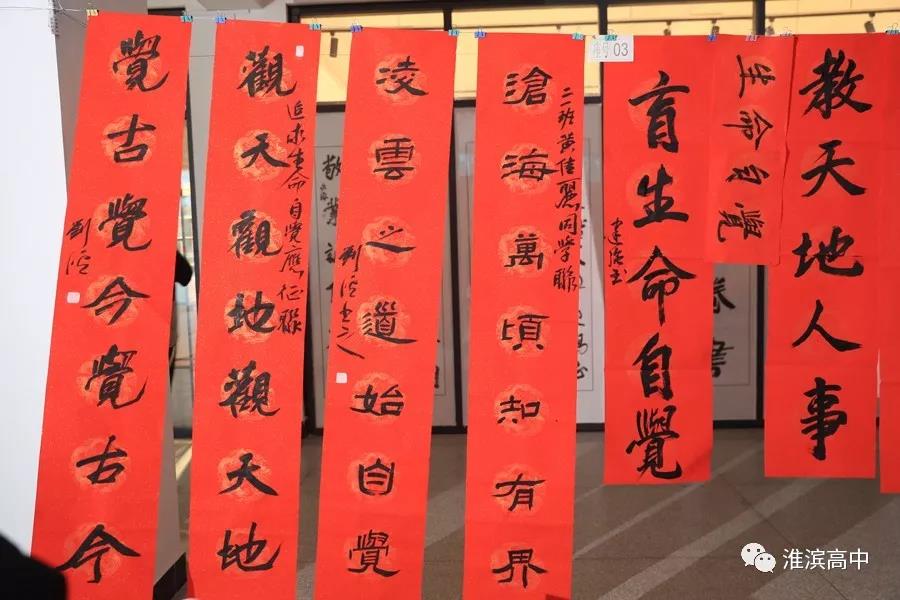 教天地人事
生命自覺
03
育生命自覺
滄海萬頃知有界
二一班黄佳麗同學聯
凌雲之道始自覺
觀天觀地觀天地
追求生命自覺應征聯
覺古覺今覺古今
淮滨高中